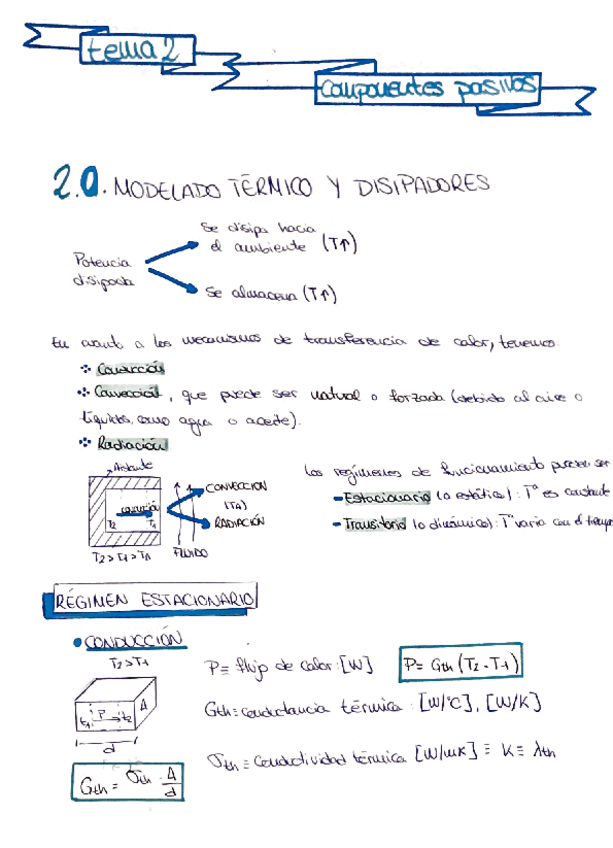 tema 2
componentes pasivos
2.0. MODELADO TÉRMICO Y DISIPADORES
Potencia
disipada
Se disipa hacia
el ambiente (T↑)
Se almacena (T↑)
En cuanto a los mecanismos de transferencia de calor, tenemos:
Conducción
Convección, que puede ser natural o forzada (debido al aire o
líquidos, como agua o aceite).
Radiación
Aislante
conducción
T2 T1
T2 > T1 > TA
FLUIDO
CONVECCIÓN
(TA)
RADIACIÓN
Los regímenes de funcionamiento pueden ser
- Estacionario (o estático): Tª es constante
- Transitorio (o dinámico): Tª varía con el tiempo
RÉGIMEN ESTACIONARIO
CONDUCCIÓN
T2 > T1
t1 P t2 A
d
Gth = σth · A/d
P ≡ flujo de calor: [W]
P = Gth (T2 - T1)
Gth ≡ conductancia térmica: [W/°C], [W/K]
σth ≡ conductividad térmica [W/mK] ≡ K ≡ λth